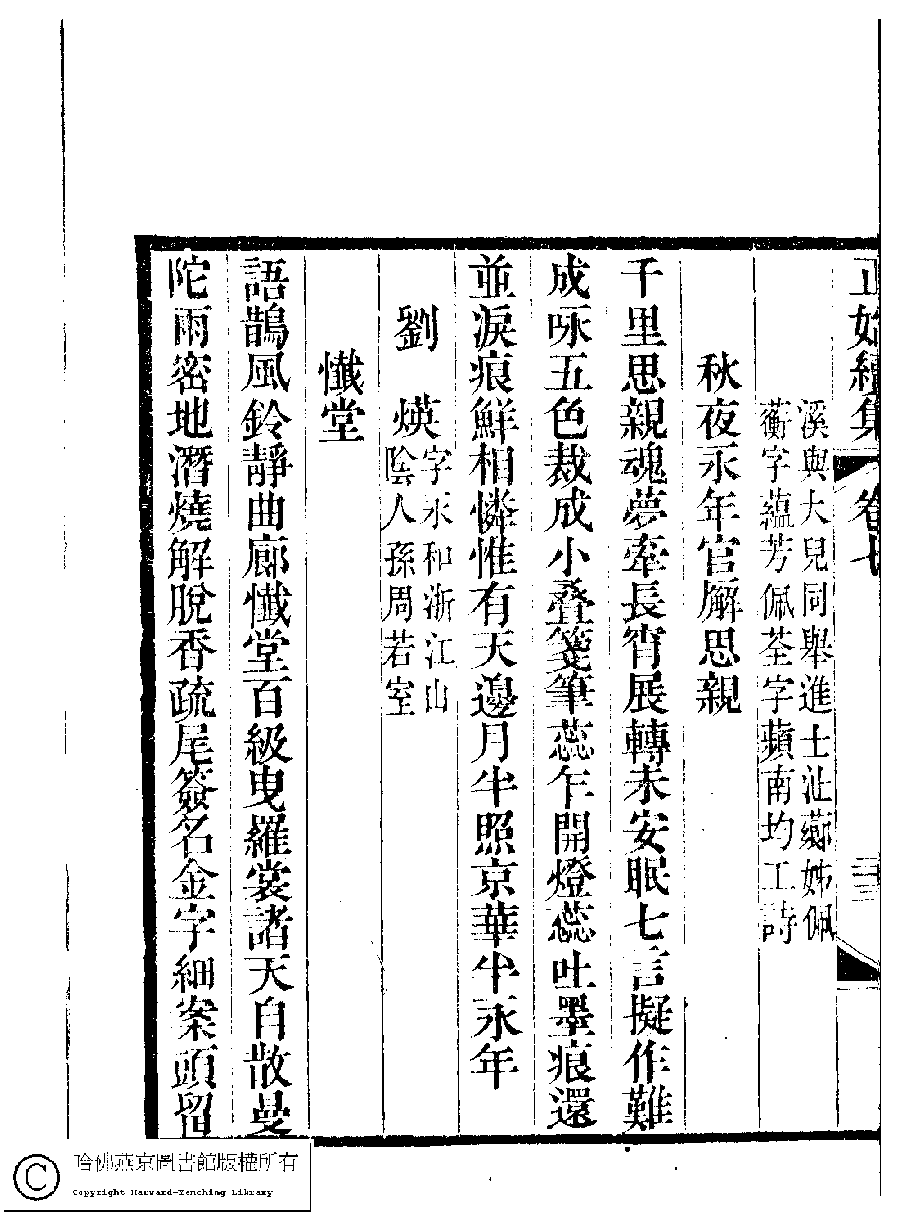 正始續集 卷七 三三
溪與大兒同舉進士沚薌姊佩
蘅字蘊芳佩荃字蘋南均工詩
秋夜永年官廨思親
千里思親魂夢牽長宵展轉未安眠七言擬作難
成咏五色裁成小叠箋筆蕊乍開燈蕊吐墨痕還
並淚痕鮮相憐惟有天邊月半照京華半永年
劉 煐字永和浙江山
陰人孫周若室
懺堂
語鵲風鈴靜曲廊懺堂百級曳羅裳諸天自散曼
陀雨密地潛燒解脫香疏尾簽名金字細案頭留
哈佛燕京圖書館版權所有
Copyright Harvard-Yenching Library